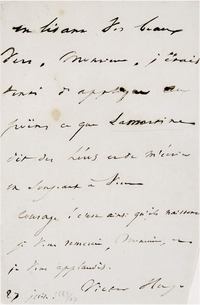 en lisant vos beaux
vers, Monsieur, j'étais
tenté d'appliquer aux
poëtes ce que Lamartine
dit des héros et de m'écrier
en songeant à vous
courage ! c'est ainsi qu'ils naissent
je vous remercie, Monsieur, et
je vous applaudis.
Victor Hugo
27 juin